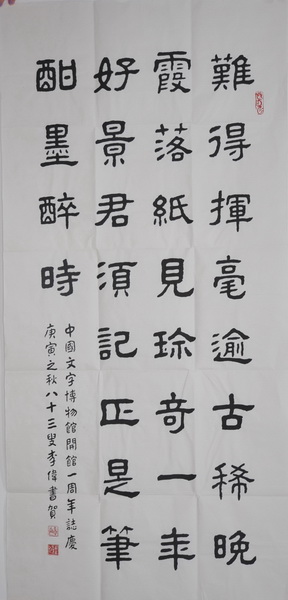 難得揮毫逾古稀晚
霞落紙見琮奇一年
好景君須記正是筆
酣墨醉時
中國文字博物館開館一周年誌慶
庚寅之秋八十三叟李偉書賀